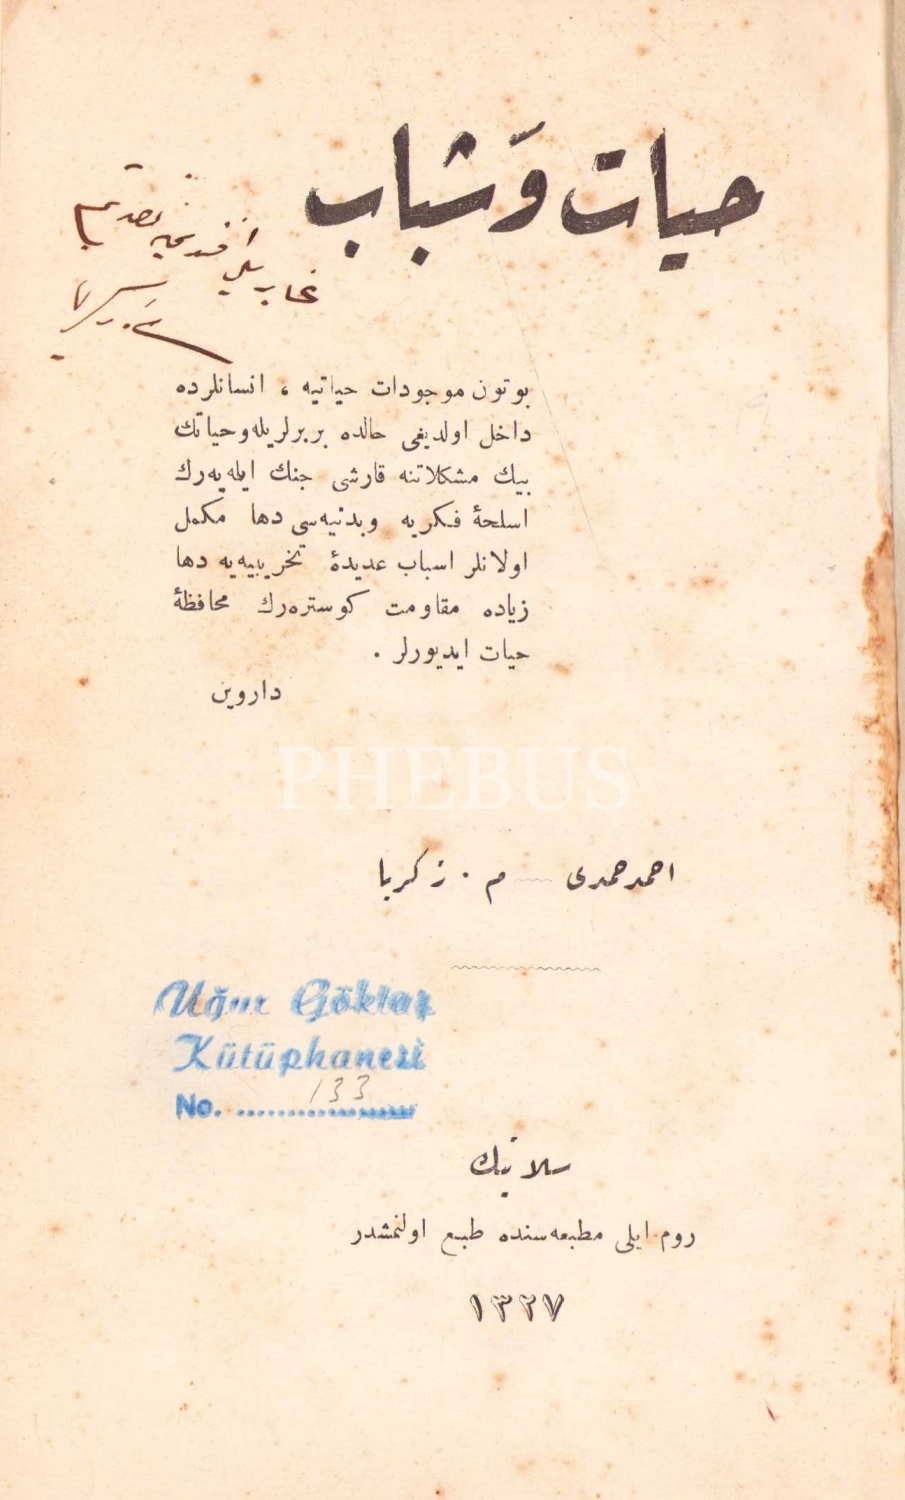 حيات وَشباب
بوتون موجودات حياتيه ، انسانلرده
داخل اولديغى حالده بربرلريله وحياتك
بيك مشكلاتنه قارشى جنك ايله‌يه‌رك
اسلحۀ فكريه وبدنيه‌سى دها مكمل
اولانلر اسباب عديدۀ تخريبيه‌يه دها
زياده مقاومت كوستره‌رك محافظۀ
حيات ايديورلر .
داروين
PHEBUS
احمد حمدى — م . زكريا
Uğur Göktaş
Kütüphanesi
No. 133
سلانيك
روم ايلى مطبعه‌سنده طبع اولنمشدر
١٣٢٧